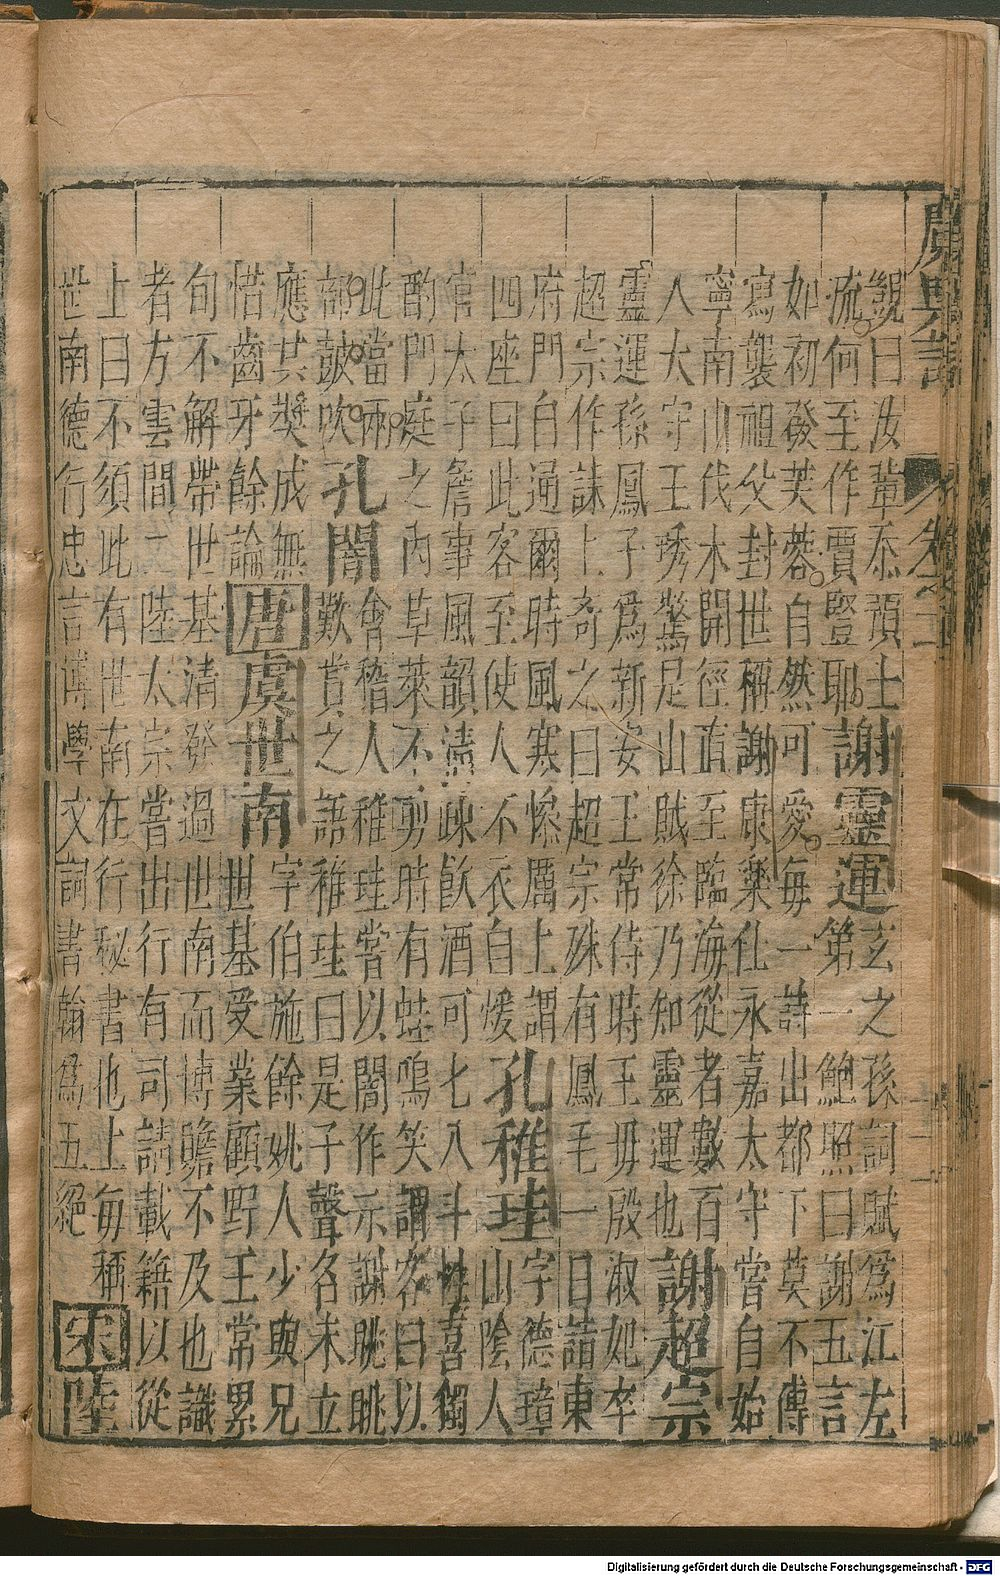 廣輿記
卷之
覬曰汝輩忝預士
流何至作賈豎耶
謝靈運
玄之孫詞賦爲江左
第一鮑照曰謝五言
如初發芙蓉自然可愛每一詩出都下莫不傳
寫襲祖父封世稱謝康樂仕永嘉太守嘗自始
寧南山伐木開徑直至臨海從者數百
人大守王琇驚足山賦徐乃知靈運也
謝超宗
靈運孫鳳子爲新安王常侍時王母殷淑妃卒
超宗作誄上奇之曰超宗殊有鳳毛一日詣東
府門自通爾時風寒慘厲上謂
四座曰此客至使人不衣自煖
孔稚珪
字德璋
山陰人
官太子詹事風韻清疎飲酒可七八斗性喜獨
酌門庭之內草萊不剪時有蛙鳴笑謂客曰以
此當兩
部鼓吹
孔闇
會稽人稚珪嘗以闇作示謝眺眺
歎賞之語稚珪曰是子聲名未立
應共獎成無
惜齒牙餘論
唐虞世南
字伯施餘姚人少與兄
世基受業顧野王常累
旬不解帶世基清發過世南而博贍不及也識
者方雲間二陸太宗嘗出行有司請載籍以從
上曰不須此有世南在行秘書也上每稱
世南德行忠言博學文詞書翰爲五絕
宋陸
Digitalisierung gefördert durch die Deutsche Forschungsgemeinschaft - DFG